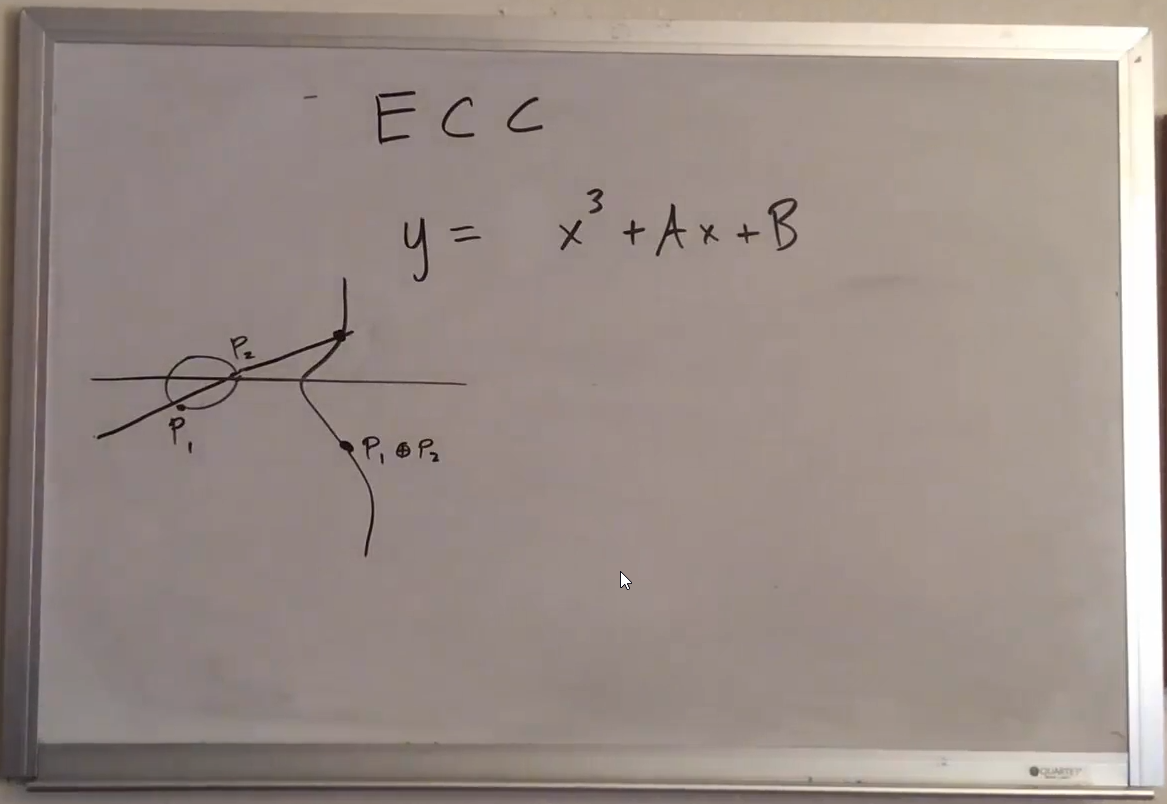 ECC
y = x³ + Ax + B
P₂
P₁
P₁ ⊕ P₂
QUARTET